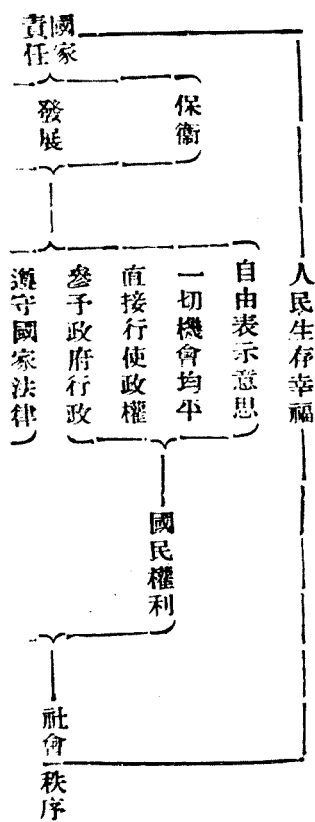 國家
責任
保衞
發展
人民生存幸福
自由表示意思
一切機會均平
直接行使政權
參予政府行政
遵守國家法律
國民權利
社會秩序